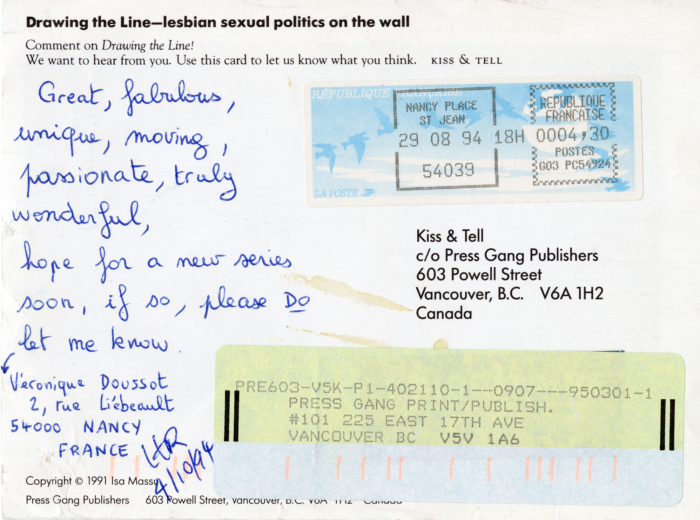 Drawing the Line—lesbian sexual politics on the wall
Comment on Drawing the Line!
We want to hear from you. Use this card to let us know what you think. KISS & TELL
Great, fabulous,
unique, moving,
passionate, truly
wonderful,
hope for a new series
soon, if so, please DO
let me know.
Véronique Doussot
2, rue Liébeault
54000 NANCY
FRANCE
4/10/94
RÉPUBLIQUE FRANÇAISE
NANCY PLACE
ST JEAN
29 08 94 18H
54039
REPUBLIQUE
FRANCAISE
0004,30
POSTES
G03 PC54924
LA POSTE
Kiss & Tell
c/o Press Gang Publishers
603 Powell Street
Vancouver, B.C. V6A 1H2
Canada
PRE603-V5K-P1-402110-1--0907---950301-1
PRESS GANG PRINT/PUBLISH.
#101 225 EAST 17TH AVE
VANCOUVER BC V5V 1A6
Copyright © 1991 Isa Massu
Press Gang Publishers 603 Powell Street, Vancouver, B.C. V6A 1H2 Canada